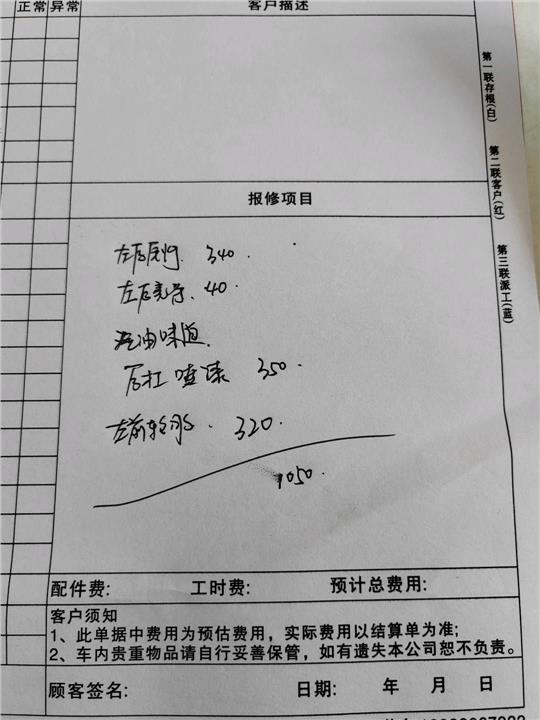 正常 异常 客户描述
第一联存根(白)
第二联客户(红)
第三联派工(蓝)
报修项目
左后尾灯 340
左后 40
汽油味道
后杠喷漆 350
左前轮 320
1050
配件费: 工时费: 预计总费用:
客户须知
1、此单据中费用为预估费用，实际费用以结算单为准;
2、车内贵重物品请自行妥善保管，如有遗失本公司恕不负责。
顾客签名: 日期: 年 月 日